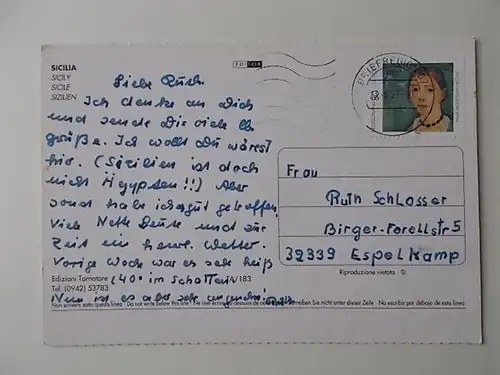 SICILIA
SICILY
SICILE
SIZILIEN
EDITOR
BRIEFREGION
Liebe Ruth.
Ich denke an Dich
und sende Dir viele lb
grüße. Ich wollt Du wärest
hir. (Sizilien ist doch
nicht Ägypten!!) Aber
sonst habe ich es gut getroffen
Viele Nette Leute und zur
Zeit ein Wetter.
Vorige Woch war es sehr heiß
(40° im Schatten)
Nun ist es aber sehr
Frau
Ruth Schlosser
Birger-Forellstr 5
32339 Espelkamp
Edizioni Tornatore
183
Tel. (0942) 53783
Riproduzione vietata ©
Non scrivere sotto questa linea - Do not write below this line - Ne rien écrire au-dessous de cette Schreiben Sie nicht unter dieser Zeile - No escribir por debajo de esta linea